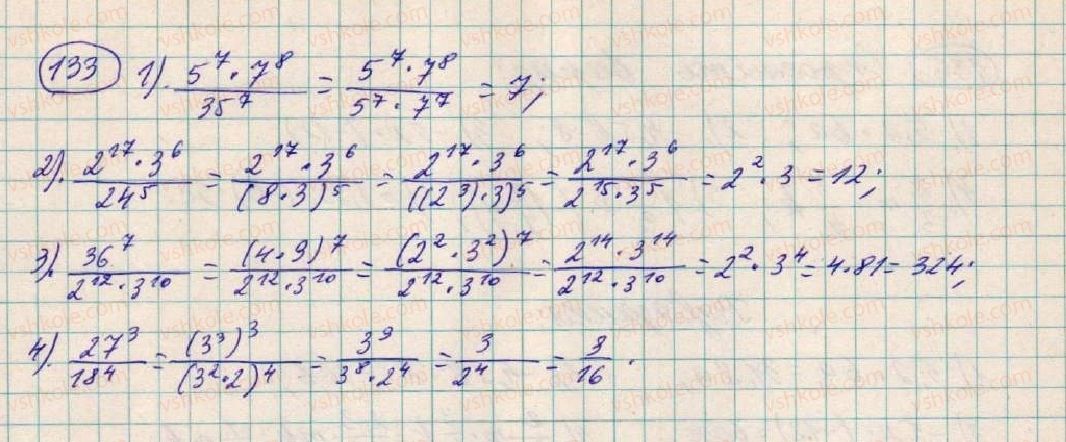 133 1). 5^7·7^8/35^7 = 5^7·7^8/5^7·7^7 = 7;
2). 2^17·3^6/24^5 = 2^17·3^6/(8·3)^5 = 2^17·3^6/((2^3)·3)^5 = 2^17·3^6/2^15·3^5 = 2^2·3 = 12;
3). 36^7/2^12·3^10 = (4·9)^7/2^12·3^10 = (2^2·3^2)^7/2^12·3^10 = 2^14·3^14/2^12·3^10 = 2^2·3^4 = 4·81 = 324;
4). 27^3/18^4 = (3^3)^3/(3^2·2)^4 = 3^9/3^8·2^4 = 3/2^4 = 3/16.